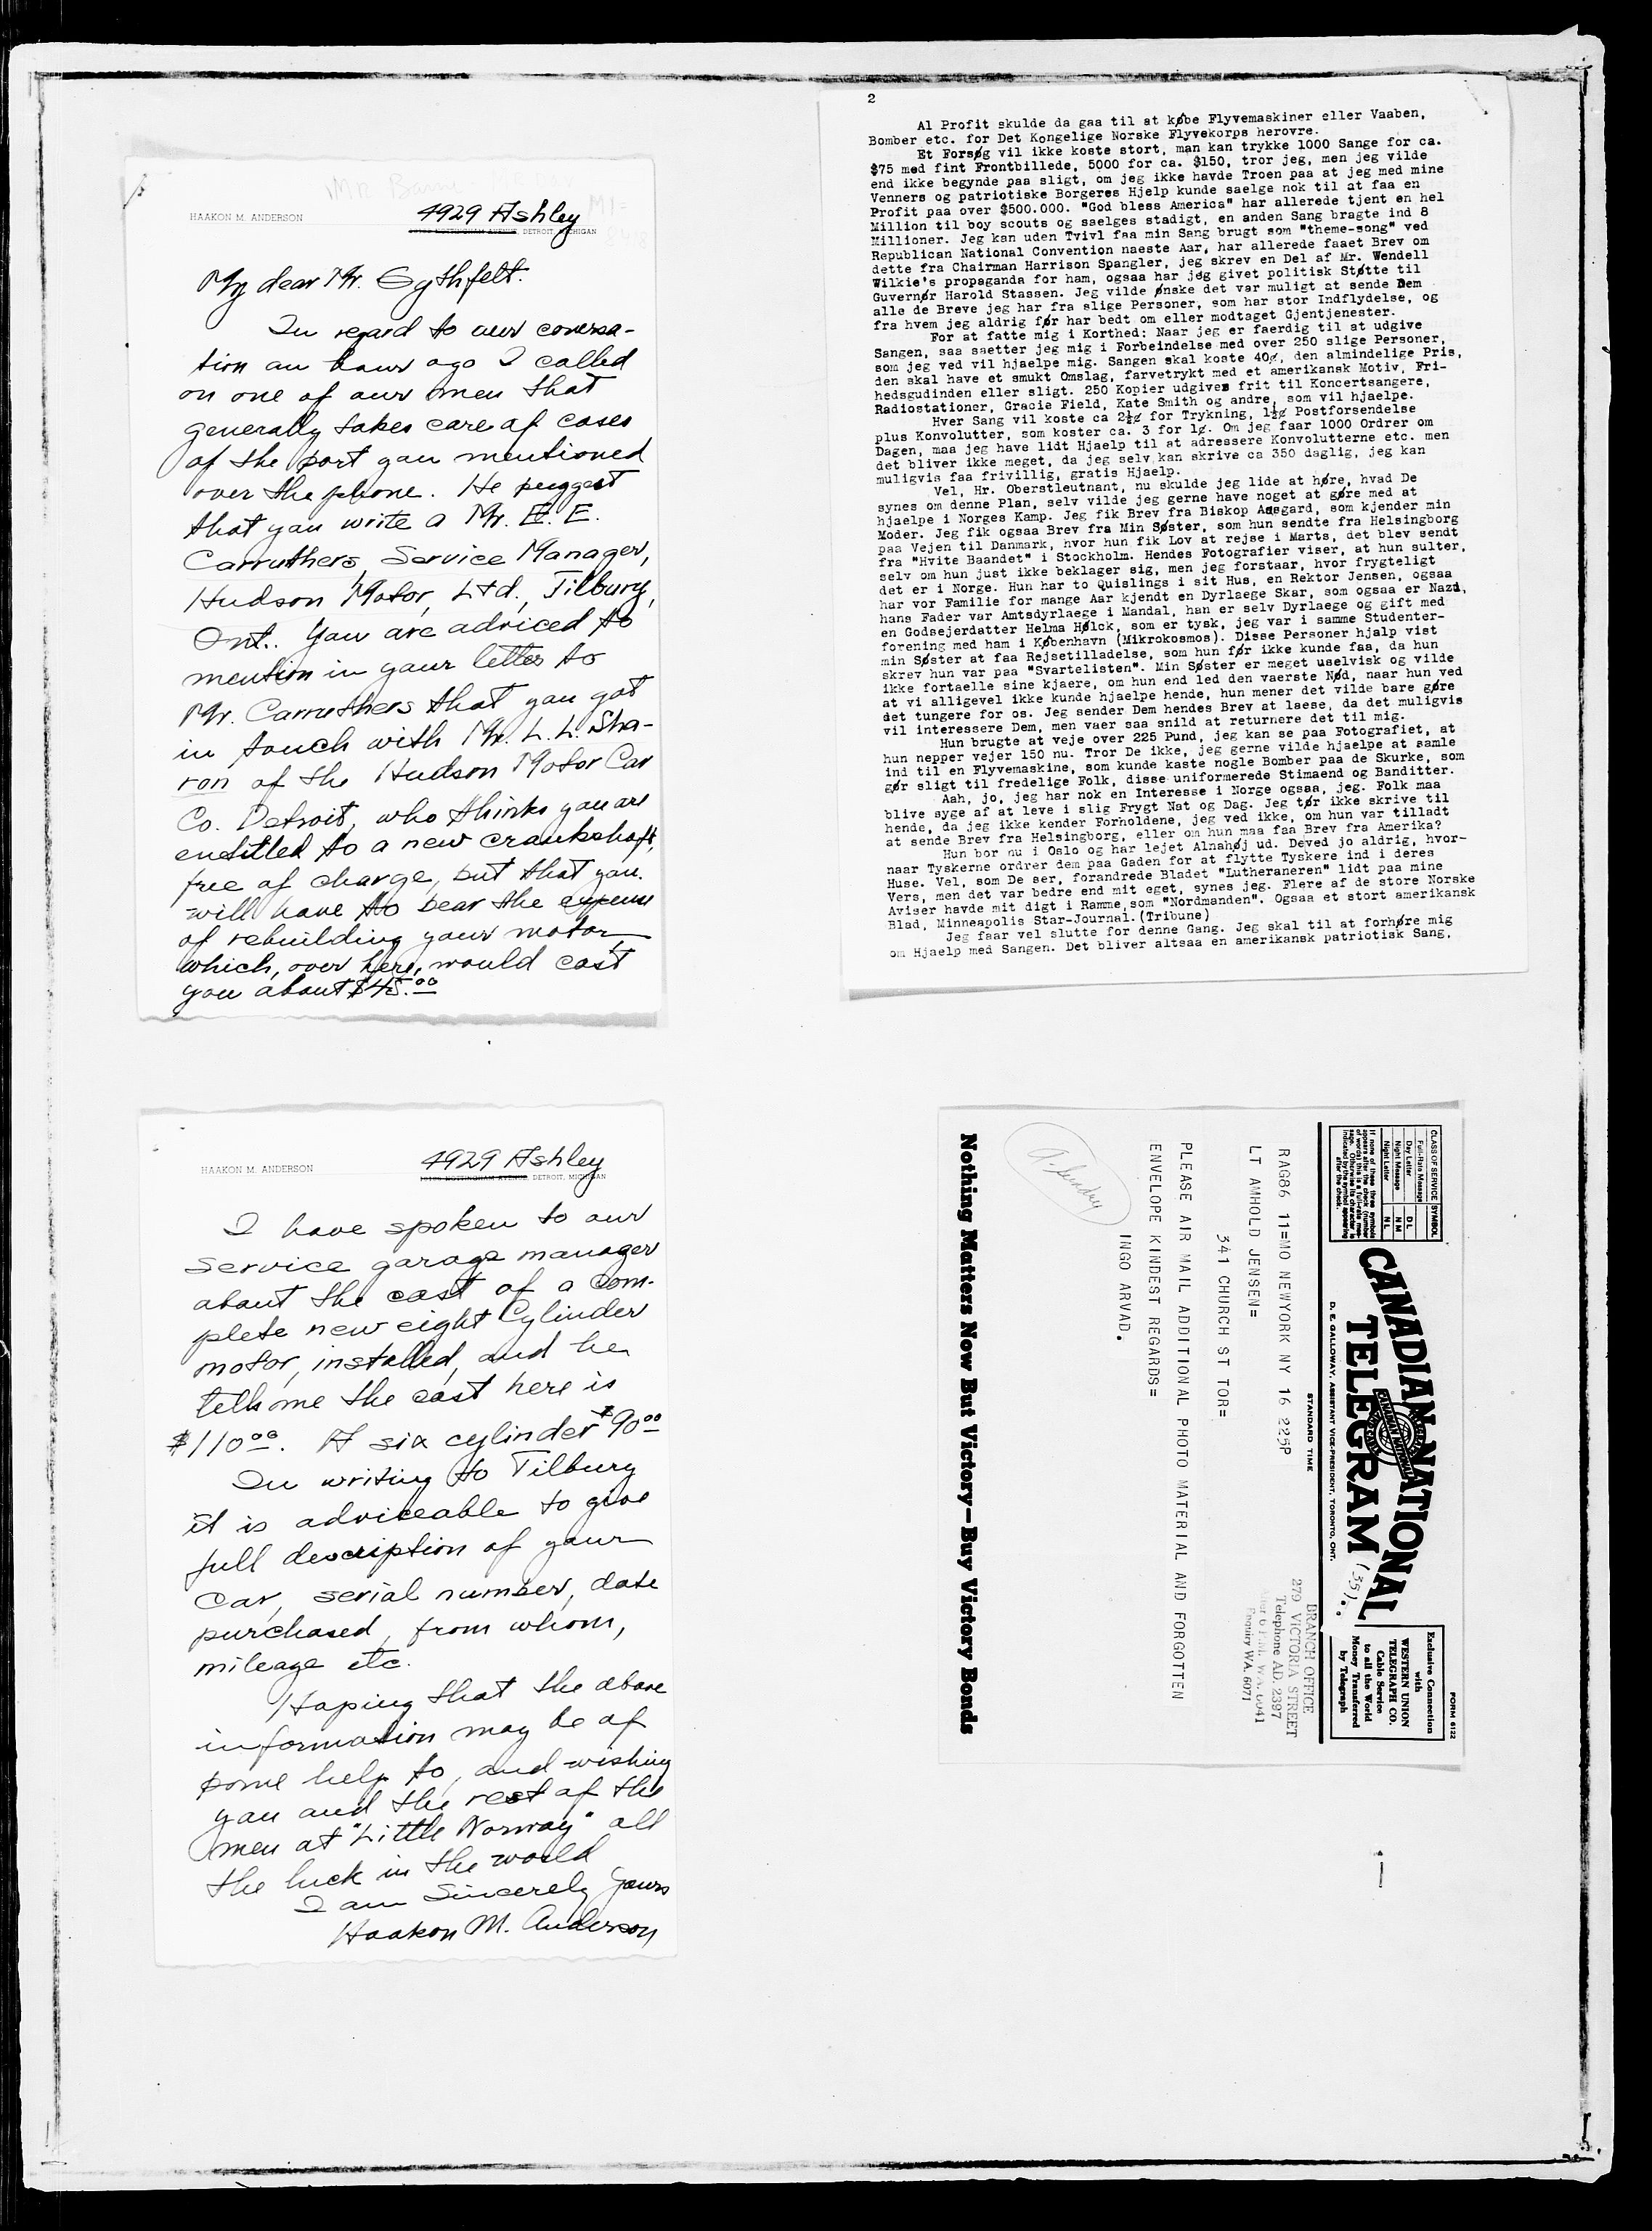 HAAKON M. ANDERSON
4929 Ashley
NOTTINGHAM AVENUE, DETROIT, MICHIGAN
My dear Mr. Gythfelt.
In regard to our conversa-
tion an hour ago I called
on one of our men that
generally takes care of cases
of the sort you mentioned
over the phone. He suggest
that you write a Mr. E. E.
Carruthers, Service Manager,
Hudson Motor, Ltd., Tilbury,
Ont.. You are adviced to
mention in your letter to
Mr. Carruthers that you got
in touch with Mr. L. L. Sha-
ron of the Hudson Motor Car
Co. Detroit, who thinks you are
entitled to a new crankshaft,
free of charge, but that you
will have to bear the expense
of rebuilding your motor
which, over here, would cost
you about $45.00
2
Al Profit skulde da gaa til at købe Flyvemaskiner eller Vaaben,
Bomber etc. for Det Kongelige Norske Flyvekorps herovre.
Et Forsøg vil ikke koste stort, man kan trykke 1000 Sange for ca.
$75 med fint Frontbillede, 5000 for ca. $150, tror jeg, men jeg vilde
end ikke begynde paa sligt, om jeg ikke havde Troen paa at jeg med mine
Venners og patriotiske Borgeres Hjelp kunde saelge nok til at faa en
Profit paa over $500.000. "God bless America" har allerede tjent en hel
Million til boy scouts og saelges stadigt, en anden Sang bragte ind 8
Millioner. Jeg kan uden Tvivl faa min Sang brugt som "theme-song" ved
Republican National Convention naeste Aar, har allerede faaet Brev om
dette fra Chairman Harrison Spangler, jeg skrev en Del af Mr. Wendell
Wilkie's propaganda for ham, ogsaa har jeg givet politisk Støtte til
Guvernør Harold Stassen. Jeg vilde ønske det var muligt at sende Dem
alle de Breve jeg har fra slige Personer, som har stor Indflydelse, og
fra hvem jeg aldrig før har bedt om eller modtaget Gjentjenester.
For at fatte mig i Korthed: Naar jeg er faerdig til at udgive
Sangen, saa saetter jeg mig i Forbeindelse med over 250 slige Personer,
som jeg ved vil hjaelpe mig. Sangen skal koste 40¢, den almindelige Pris,
den skal have et smukt Omslag, farvetrykt med et amerikansk Motiv, Fri-
hedsgudinden eller sligt. 250 Kopier udgives frit til Koncertsangere,
Radiostationer, Gracie Field, Kate Smith og andre, som vil hjaelpe.
Hver Sang vil koste ca 2½¢ for Trykning, 1½¢ Postforsendelse
plus Konvolutter, som koster ca. 3 for 1¢. Om jeg faar 1000 Ordrer om
Dagen, maa jeg have lidt Hjaelp til at adressere Konvolutterne etc. men
det bliver ikke meget, da jeg selv kan skrive ca 350 daglig, jeg kan
muligvis faa frivillig, gratis Hjaelp.
Vel, Hr. Oberstleutnant, nu skulde jeg lide at høre, hvad De
synes om denne Plan, selv vilde jeg gerne have noget at gøre med at
hjaelpe i Norges Kamp. Jeg fik Brev fra Biskop Aasgard, som kjender min
Moder. Jeg fik ogsaa Brev fra Min Søster, som hun sendte fra Helsingborg
paa Vejen til Danmark, hvor hun fik Lov at rejse i Marts, det blev sendt
fra "Hvite Baandet" i Stockholm. Hendes Fotografier viser, at hun sulter,
selv om hun just ikke beklager sig, men jeg forstaar, hvor frygteligt
det er i Norge. Hun har to Quislings i sit Hus, en Rektor Jensen, ogsaa
har vor Familie for mange Aar kjendt en Dyrlaege Skar, som ogsaa er Nazi,
hans Fader var Amtsdyrlaege i Mandal, han er selv Dyrlaege og gift med
en Godsejerdatter Helma Hølck, som er tysk, jeg var i samme Studenter-
forening med ham i København (Mikrokosmos). Disse Personer hjalp vist
min Søster at faa Rejsetilladelse, som hun før ikke kunde faa, da hun
skrev hun var paa "Svartelisten". Min Søster er meget uselvisk og vilde
ikke fortaelle sine kjaere, om hun end led den vaerste Nød, naar hun ved
at vi alligevel ikke kunde hjaelpe hende, hun mener det vilde bare gøre
det tungere for os. Jeg sender Dem hendes Brev at laese, da det muligvis
vil interessere Dem, men vaer saa snild at returnere det til mig.
Hun brugte at veje over 225 Pund, jeg kan se paa Fotografiet, at
hun nepper vejer 150 nu. Tror De ikke, jeg gerne vilde hjaelpe at samle
ind til en Flyvemaskine, som kunde kaste nogle Bomber paa de Skurke, som
gør sligt til fredelige Folk, disse uniformerede Stimaend og Banditter.
Aah, jo, jeg har nok en Interesse i Norge ogsaa, jeg. Folk maa
blive syge af at leve i slig Frygt Nat og Dag. Jeg tør ikke skrive til
hende, da jeg ikke kender Forholdene, jeg ved ikke, om hun var tilladt
at sende Brev fra Helsingborg, eller om hun maa faa Brev fra Amerika?
Hun bor nu i Oslo og har lejet Alnahøj ud. Deved jo aldrig, hvor-
naar Tyskerne ordrer dem paa Gaden for at flytte Tyskere ind i deres
Huse. Vel, som De ser, forandrede Bladet "Lutheraneren" lidt paa mine
Vers, men det var bedre end mit eget, synes jeg. Flere af de store Norske
Aviser havde mit digt i Ramme, som "Nordmanden". Ogsaa et stort amerikansk
Blad, Minneapolis Star-Journal.(Tribune)
Jeg faar vel slutte for denne Gang. Jeg skal til at forhøre mig
om Hjaelp med Sangen. Det bliver altsaa en amerikansk patriotisk Sang,
HAAKON M. ANDERSON
4929 Ashley
NOTTINGHAM AVENUE, DETROIT, MICHIGAN
I have spoken to our
service garage manager
about the cost of a com-
plete new eight Cylinder
motor, installed, and he
tells me the cost here is
$110.00. A six cylinder $90.00
In writing to Tilbury
it is adviceable to give
full description of your
Car, serial number, date
purchased, from whom,
mileage etc.
Hoping that the above
information may be of
some help to, and wishing
you and the rest of the
men at "Little Norway" all
the luck in the world
I am Sincerely Yours
Haakon M. Anderson
CLASS OF SERVICE SYMBOL
Full-Rate Message
Day Letter DL
Night Message NM
Night Letter NL
If none of these three symbols
appears after the check (number
of words) this is a full-rate mes-
sage. Otherwise its character is
indicated by the symbol appearing
after the check.
CANADIAN NATIONAL
TELEGRAM
CANADIAN NATIONAL
D. E. GALLOWAY, ASSISTANT VICE-PRESIDENT, TORONTO, ONT.
FORM 6122
Exclusive Connection
with
WESTERN UNION
TELEGRAPH CO.
Cable Service
to all the World
Money Transferred
by Telegraph
STANDARD TIME
BRANCH OFFICE
279 VICTORIA STREET
Telephone AD. 2397
Enquiry WA. 6071
RAG86 11=MO NEWYORK NY 16 225P
LT AMHOLD JENSEN=
341 CHURCH ST TOR=
PLEASE AIR MAIL ADDITIONAL PHOTO MATERIAL AND FORGOTTEN
ENVELOPE KINDEST REGARDS=
INGO ARVAD.
Nothing Matters Now But Victory—Buy Victory Bonds